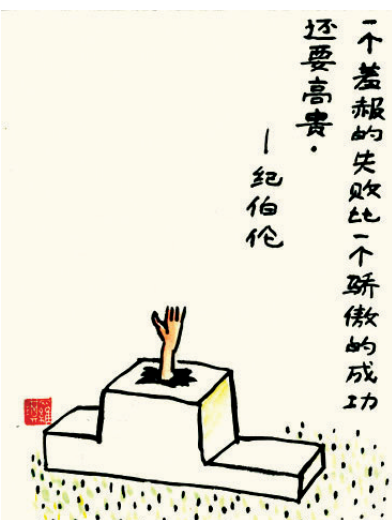 一个羞赧的失败比一个骄傲的成功
还要高贵.
—纪伯伦